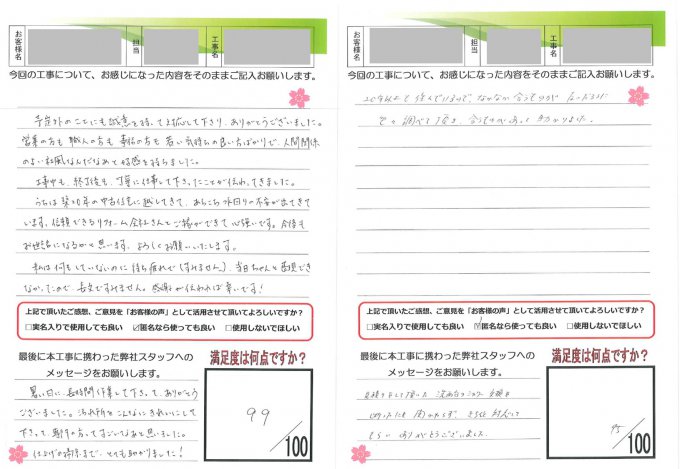 お客様名
担当
工事名
今回の工事について、お感じになった内容をそのままご記入お願いします。
予定外のことにも誠意を持って対応して下り、ありがとうございました。
営業の方も職人の方も事務の方も若い気持ちの良い方ばかりで、人間関係
のよい社風なんだなあと好感を持ちました。
工事中も、終了後も、丁寧に仕事して下さったことが伝わってきました。
うちは築20年の中古住宅に越してきて、あちこち水回りの不具が出てきて
います。信頼できるリフォーム会社さんとご縁ができて心強いです。今後も
お世話になるかと思います。よろしくお願いいたします。
私は何もしていないのに待ち疲れで(すみません)、当日ちゃんとお話しでき
なかったので、長文ですみません。感謝が伝われば幸いです!
上記で頂いたご感想、ご意見を「お客様の声」として活用させて頂いてよろしいですか?
□実名入りで使用しても良い ☑匿名なら使っても良い □使用しないでほしい
最後に本工事に携わった弊社スタッフへの
メッセージをお願いします。
暑い日に、長時間作業して下さって、ありがとう
ございました。汚れ所をこんなにきれいにして
下さって、専門の方ってすごいなあと思いました。
仕上げの掃除まで、とても助かりました!
満足度は何点ですか?
99
/100
お客様名
担当
工事名
今回の工事について、お感じになった内容をそのままご記入お願いします。
20年以上も住んでいるので、なかなか合うものが
色々調べて頂き、合うものがあって助かりました。
上記で頂いたご感想、ご意見を「お客様の声」として活用させて頂いてよろしいですか?
□実名入りで使用しても良い ☑匿名なら使っても良い □使用しないでほしい
最後に本工事に携わった弊社スタッフへの
メッセージをお願いします。
見積りをして頂いた
にも 関わらず、
ありがとうございました
満足度は何点ですか?
95
/100